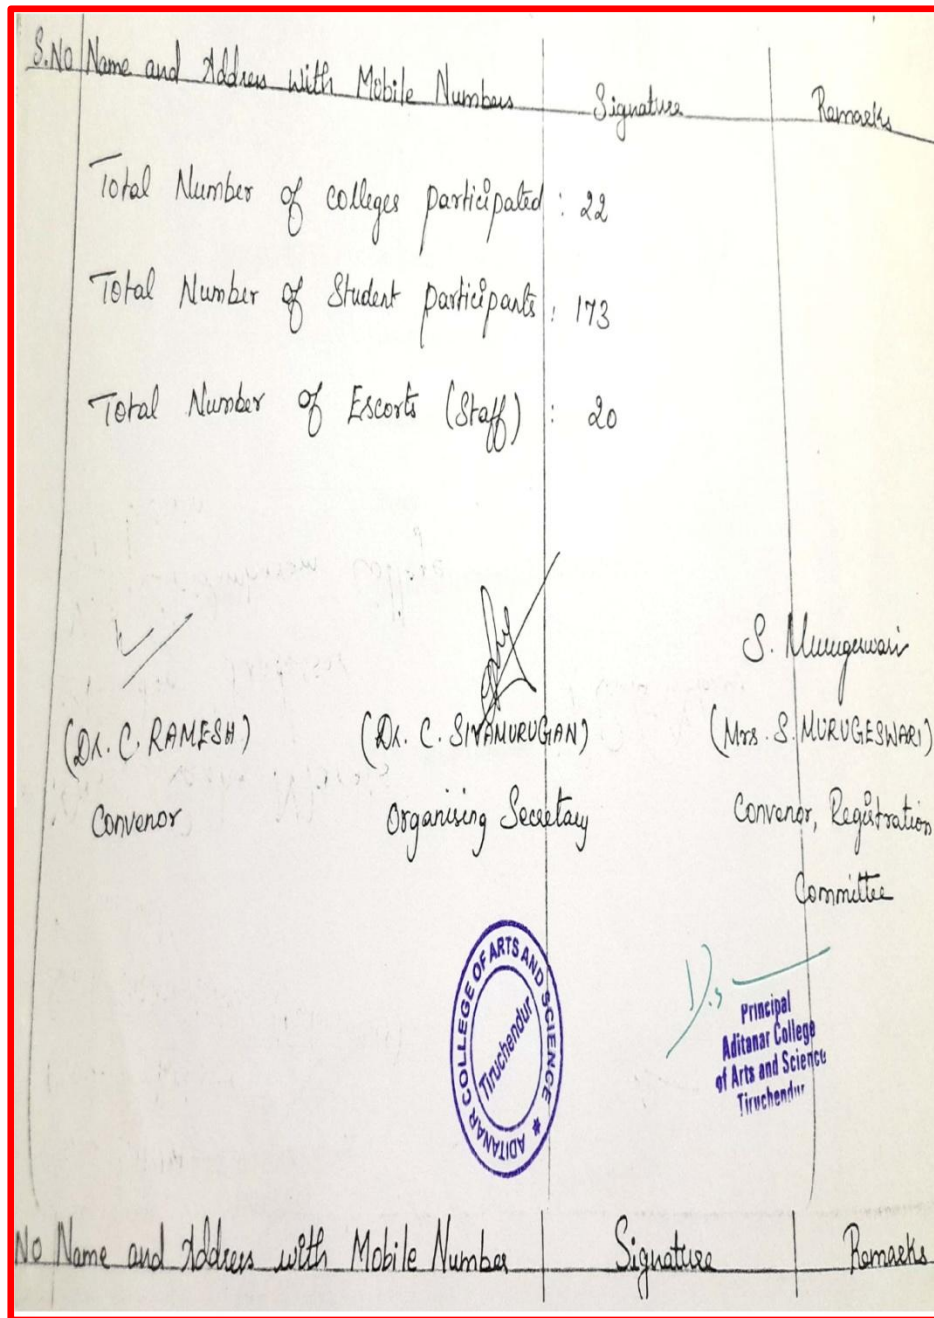 S.No Name and Address with Mobile Numbers Signature Remarks
Total Number of colleges participated : 22
Total Number of Student participants : 173
Total Number of Escorts (Staff) : 20
S. Murugeswari
(Dr. C. RAMESH) (Dr. C. SIVAMURUGAN) (Mrs. S. MURUGESWARI)
Convenor Organising Secretary Convenor, Registration
Committee
ADITANAR COLLEGE OF ARTS AND SCIENCE *
Tiruchendur
Principal
Aditanar College
of Arts and Science
Tiruchendur
No Name and Address with Mobile Number Signature Remarks